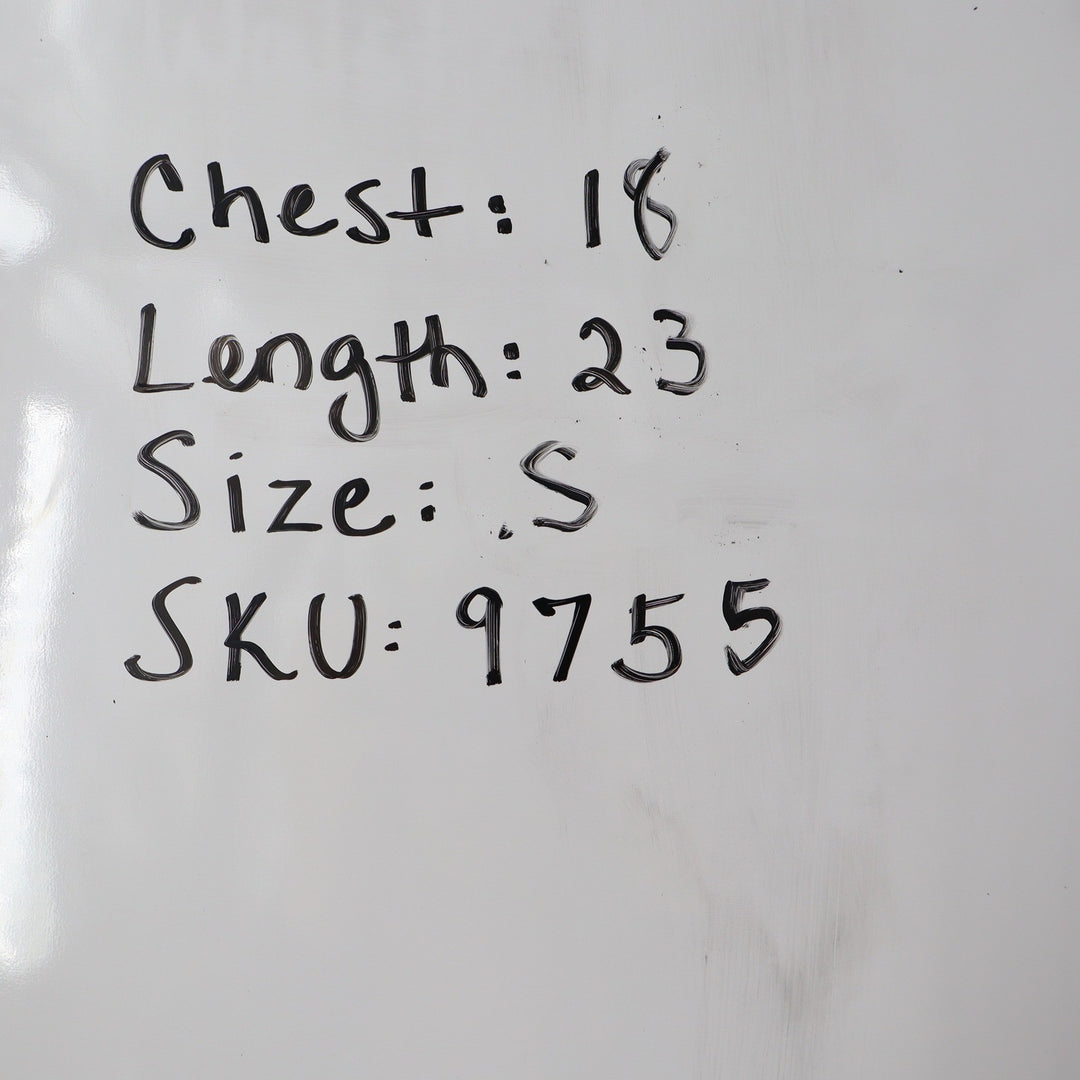 Chest: 18
Length: 23
Size: S
SKU: 9755